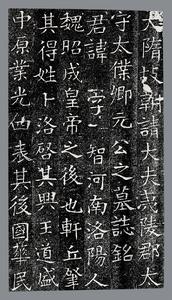 大隋故朝請大夫夷陵郡太
守太僕卿元公之墓誌銘
君諱字智河南洛陽人
魏昭成皇帝之後也軒丘肇
其得姓卜洛啓其興王道盛
中原業光四表其後國華民